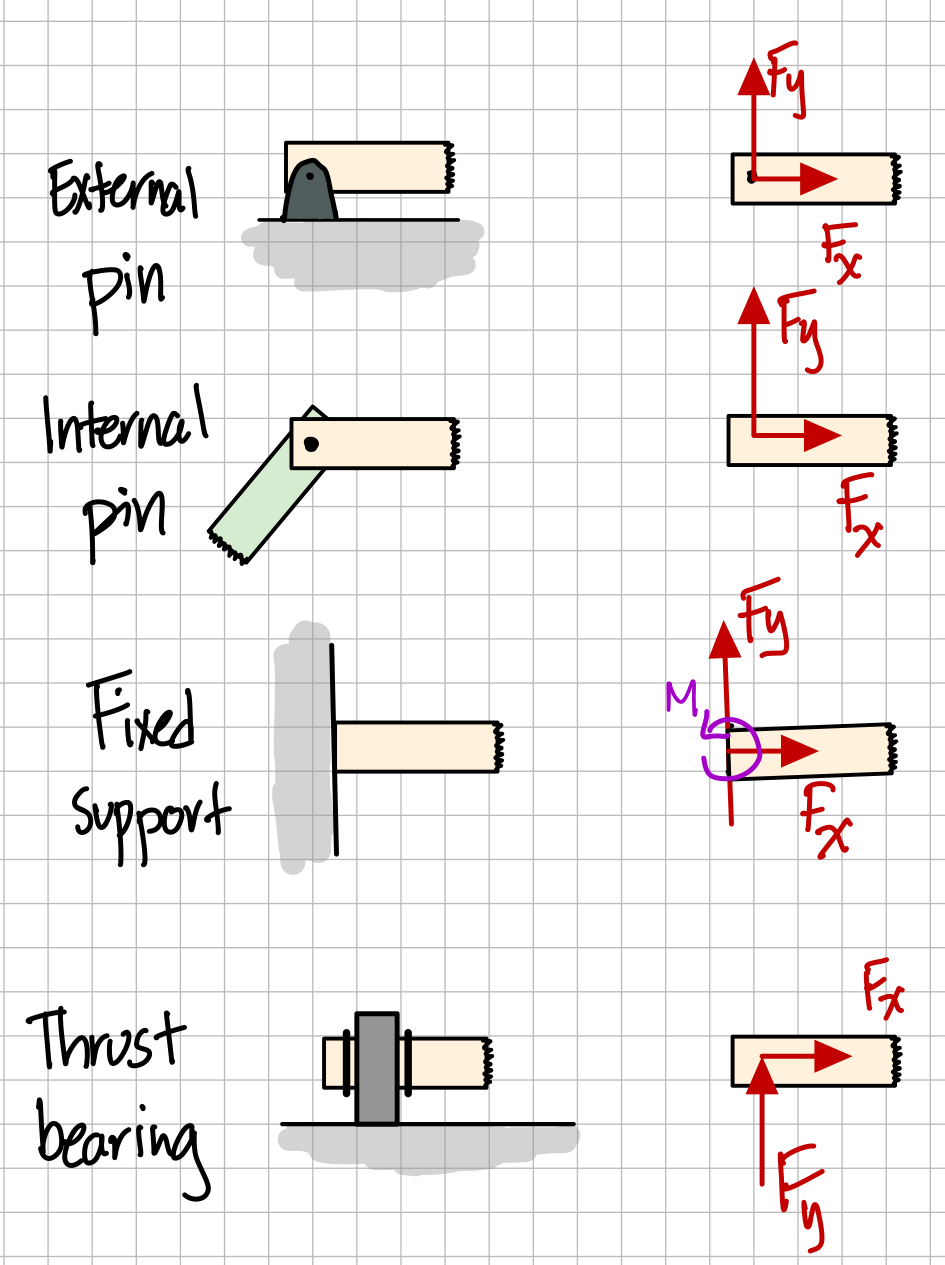 Fy
External
pin
Fx
Fy
Internal
pin
Fx
Fy
M
Fixed
support
Fx
Fx
Thrust
bearing
Fy